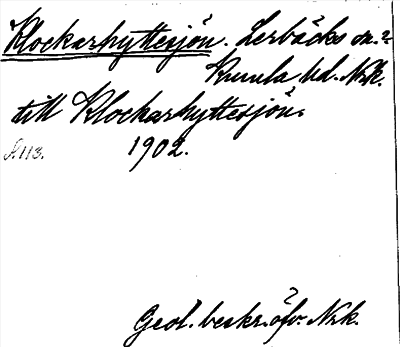 Klockarhyttesjön. Lerbäcks sn.?
Kumla hd. Nrk.
till Klockarhyttesjön.
S. 113.
1902.
Geol. beskr. öfv. Nrk.